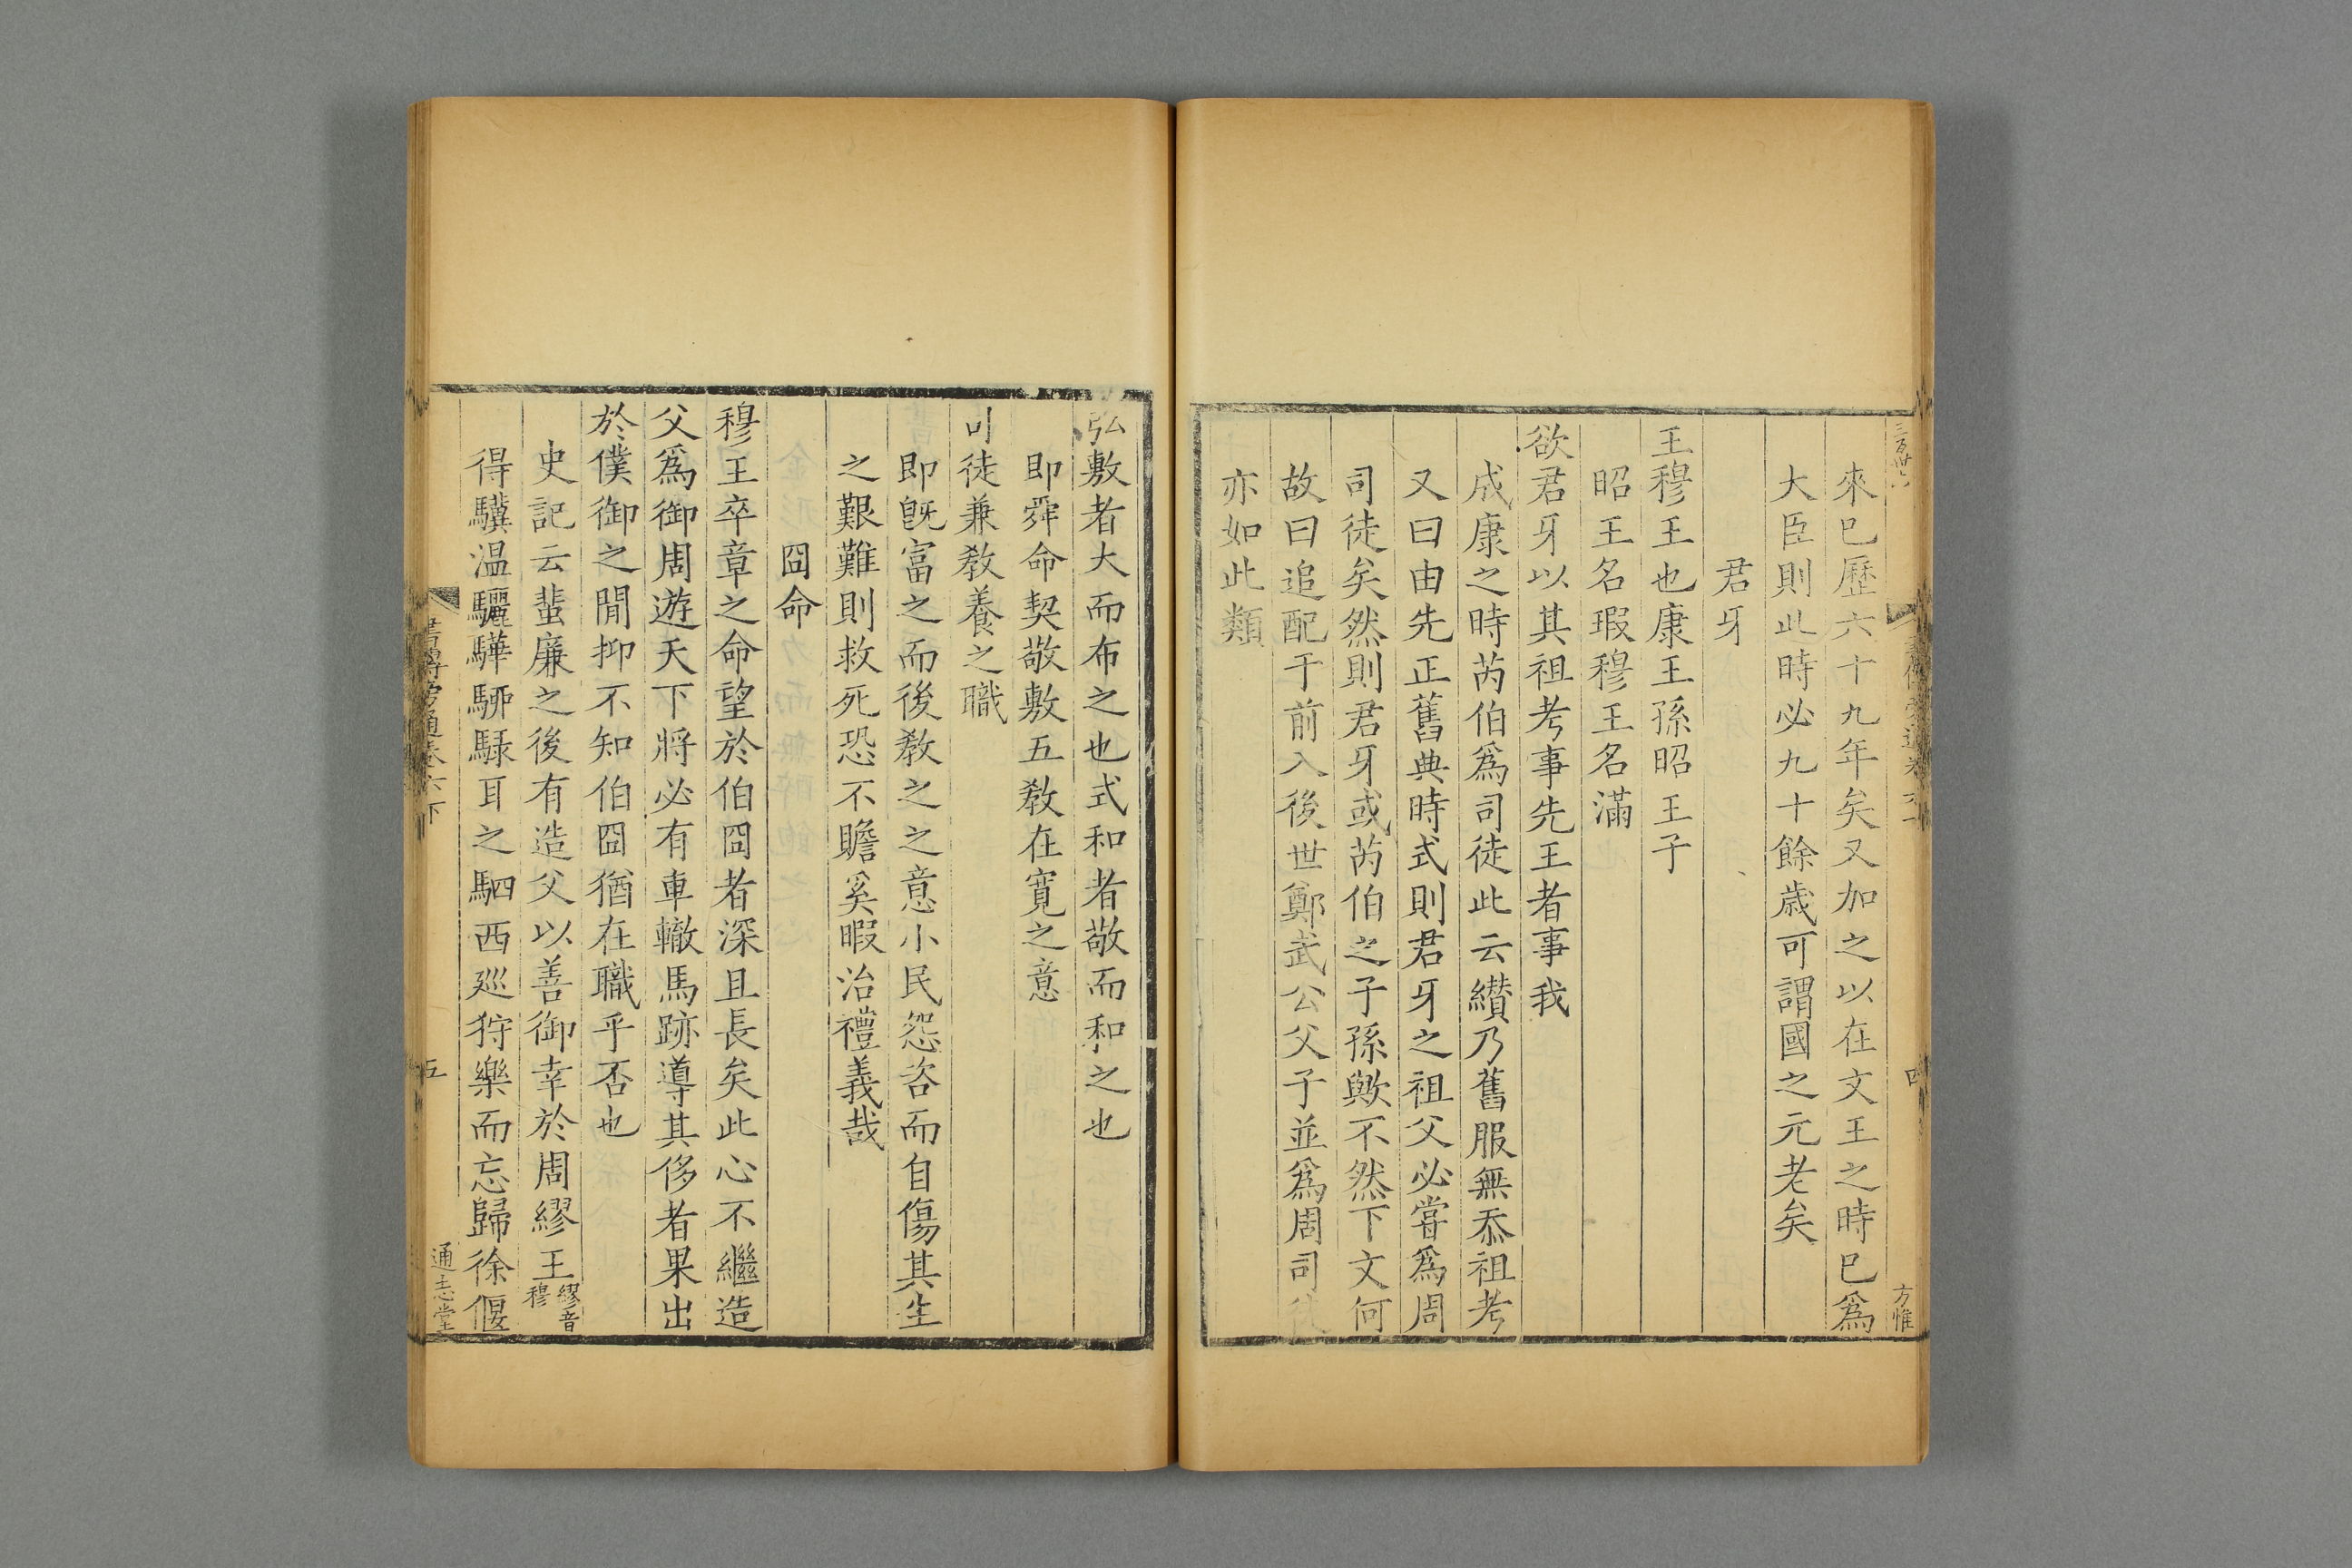 來已歷六十九年矣又加之以在文王之時已爲
大臣則此時必九十餘歲可謂國之元老矣
君牙
王穆王也康王孫昭王子
昭王名瑕穆王名滿
欲君牙以其祖考事先王者事我
成康之時芮伯爲司徒此云纘乃舊服無忝祖考
又曰由先正舊典時式則君牙之祖父必嘗爲周
司徒矣然則君牙或芮伯之子孫歟不然下文何
故曰追配于前人後世鄭武公父子並爲周司徒
亦如此類
四
方惟
弘敷者大而布之也式和者敬而和之也
即舜命契敬敷五敎在寬之意
司徒兼敎養之職
即旣富之而後敎之之意小民怨咨而自傷其生
之艱難則救死恐不贍奚暇治禮義哉
冏命
穆王卒章之命望於伯冏者深且長矣此心不繼造
父爲御周遊天下將必有車轍馬跡導其侈者果出
於僕御之閒抑不知伯冏猶在職乎否也
史記云蜚廉之後有造父以善御幸於周繆王繆音穆
得驥温驪驊駵騄耳之駟西廵狩樂而忘歸徐偃
書傳旁通卷六下
五
通志堂